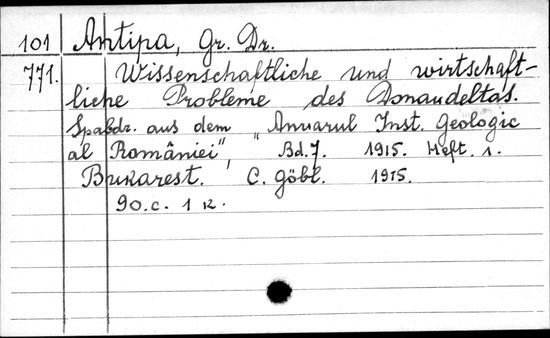 101 Antipa, Gr. Dr.
771. Wissenschaftliche und wirtschaft-
liche Probleme des Donaudeltas.
Spabdr. aus dem "Anuarul Inst. Geologic
al României", Bd.7. 1915. Heft. 1.
Bukarest. C. Göbl. 1915.
90.c. 1 K.